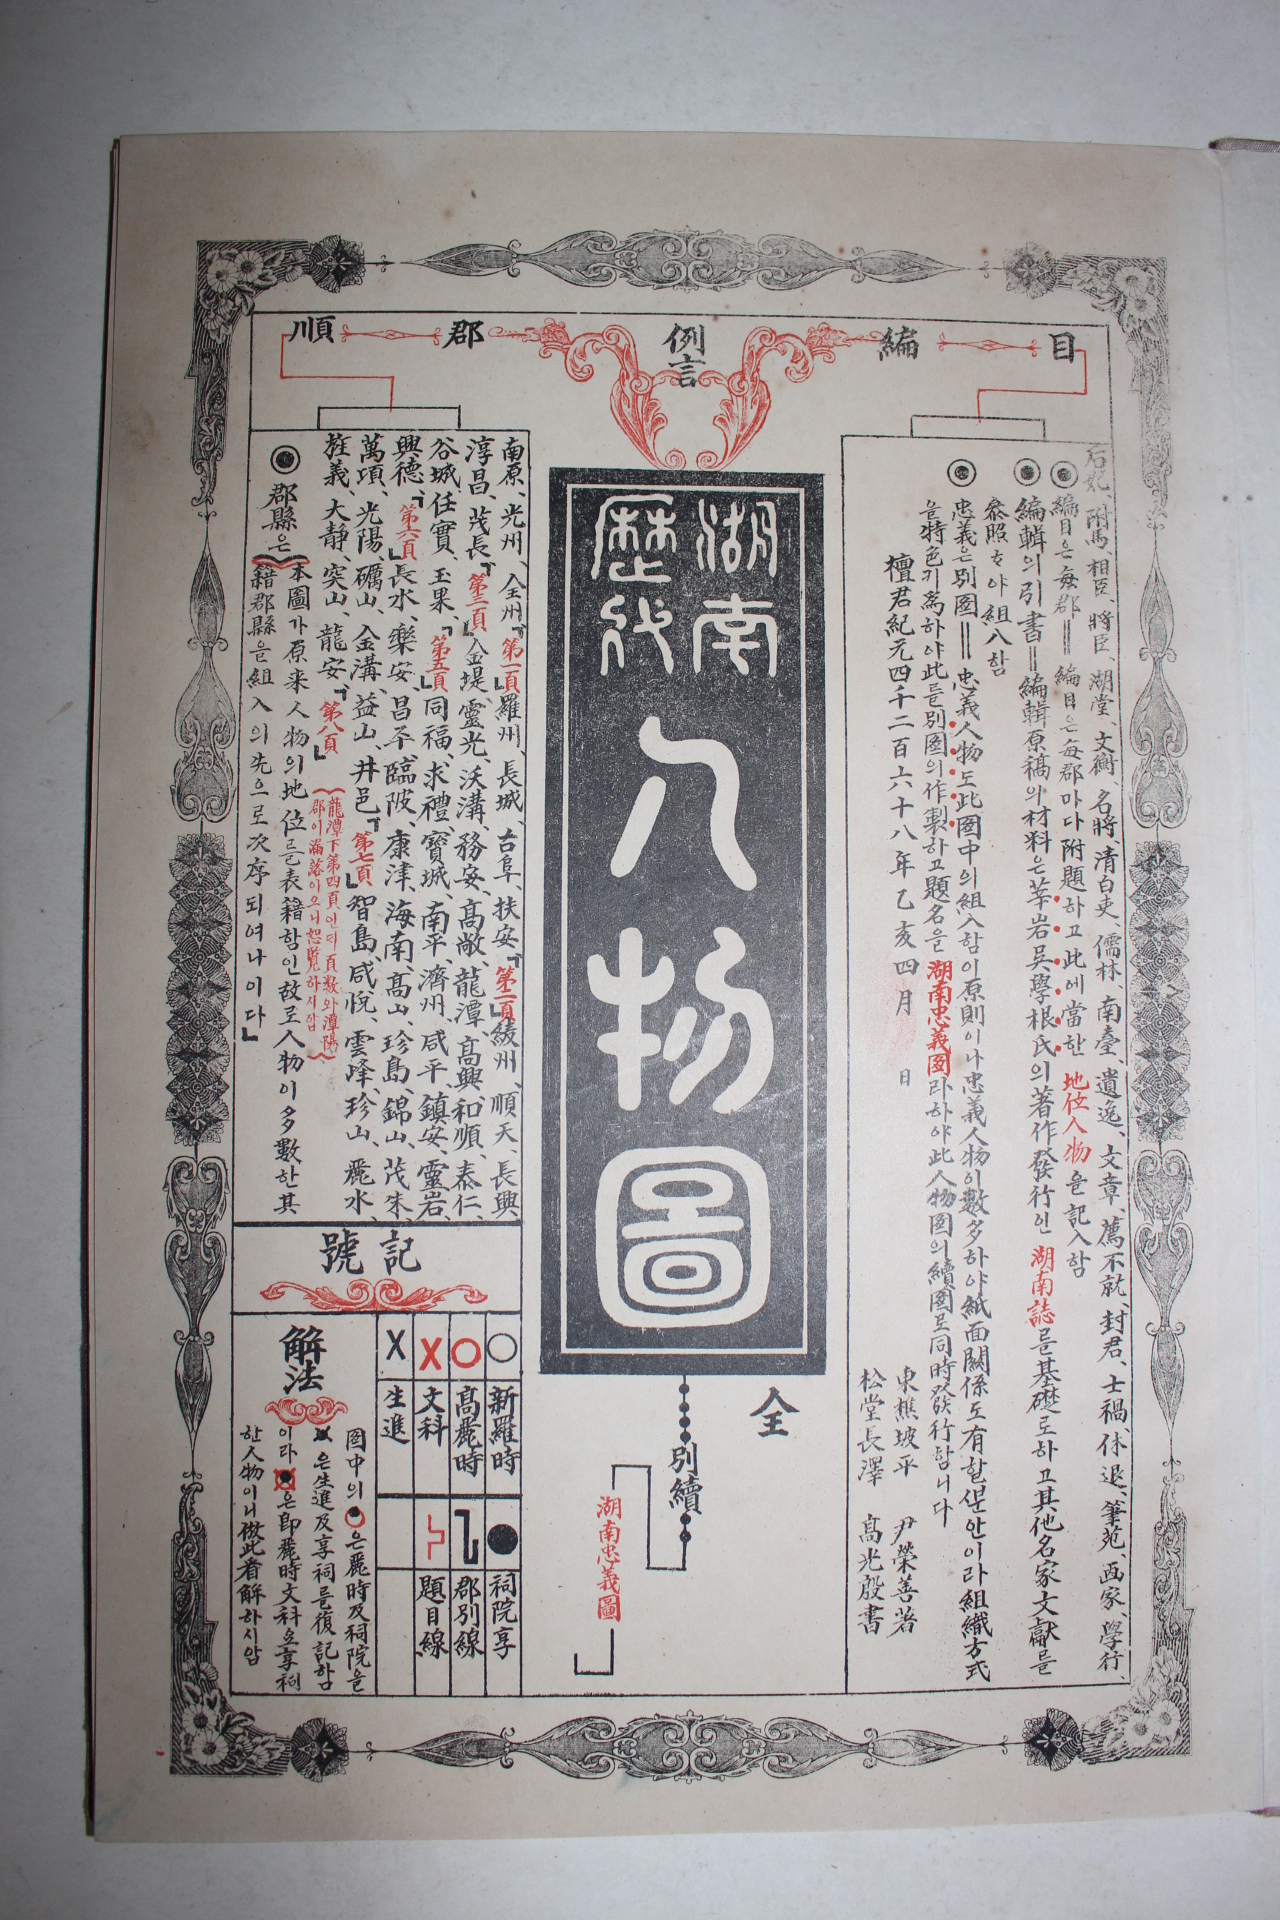 目編
例言
郡順
后妃、附馬、相臣、將臣、湖堂、文衡、名將、清白吏、儒林、南臺、遺逸、文章、薦不就、封君、士禍、休退、筆苑、画家、學行、
◉ 編目은每郡＝編目은每郡마다附題하고此에當한地位人物을記入함
◉ 編輯의引書＝編輯原稿의材料은莘岩吳學根氏의著作發行인湖南誌를基礎로하고其他名家文獻를
叅照하야組入함
◉ 忠義은別圖＝忠義人物도此圖中의組入함이原則이나忠義人物이數多하야紙面關係도有할뿐안이라組織方式
을特色키爲하야此를別圖의作製하고題名을湖南忠義圖라하야此人物圖의續圖로同時發行합니다
檀君紀元四千二百六十八年乙亥四月 日
東樵坡平 尹榮善著
松堂長澤 高光殷書
湖南
歷代
人物圖
全
別續
湖南忠義圖
南原、光州、全州、「第一頁」羅州、長城、古阜、扶安、「第二頁」綾州、順天、長興
淳昌、茂長、「第三頁」金堤、靈光、沃溝、務安、高敞、龍潭、高興、和順、泰仁、
谷城、任實、玉果、「第五頁」同福、求禮、寶城、南平、濟州、咸平、鎮安、靈岩、
興德、「第六頁」長水、樂安、昌平、臨陂、康津、海南、高山、珍島、錦山、茂朱、
萬項、光陽、礪山、金溝、益山、井邑、「第七頁」智島、咸悅、雲峰、珍山、麗水、
旌義、大静、突山、龍安、「第八頁」
龍潭下第四頁인디頁数와潭陽
郡이漏落이오니恕覽하시압
◉ 郡縣은
本圖가原来人物의地位를表籍함인故로人物이多數한其
籍郡縣을組入의先으로次序되여나이다」
記號
○ 新羅時
○ 高麗時
X 文科
X 生進
● 祠院享
郡別線
題目線
解法
圖中의
은麗時及祠院을
은生進及享祠를復記함
이라
은即麗時文科요享祠
한人物이니倣此看解하시압